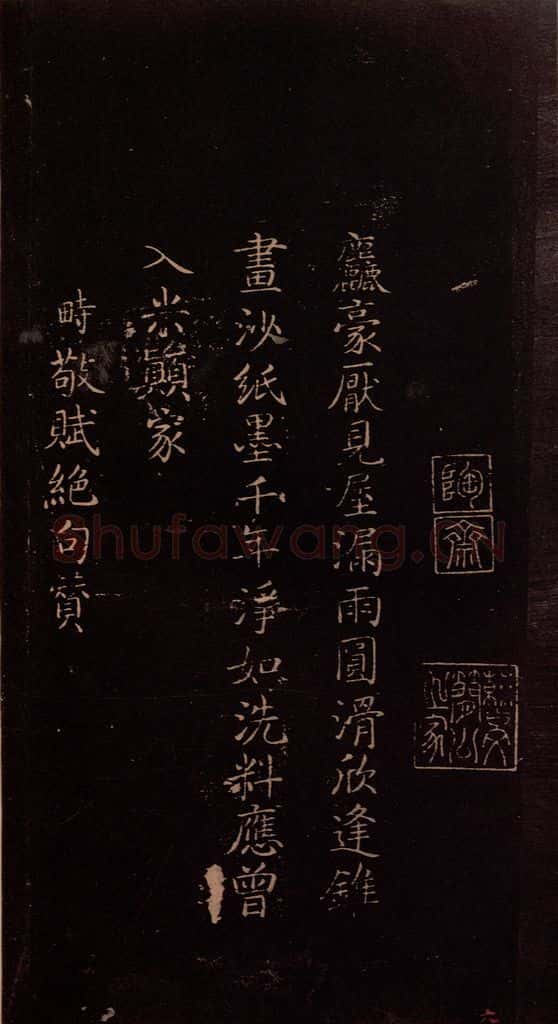 陶齋
麤豪厭見屋漏雨圓滑欣逢錐
畫沙紙墨千年淨如洗料應曾
入米顛家
畤敬賦絕句贊
Shufawang.cn